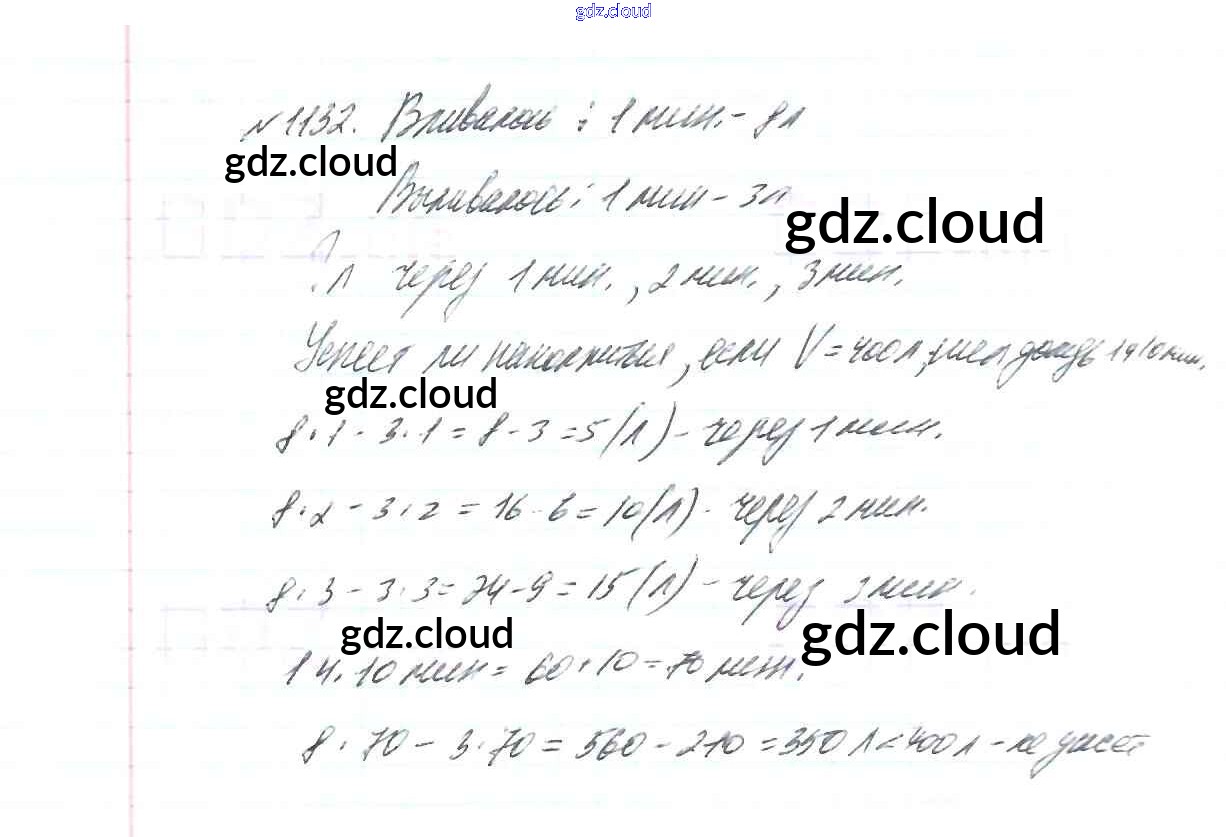 gdz.cloud
№1132. Вливалось: 1 мин. - 8л
gdz.cloud
Выливалось: 1 мин - 3л
gdz.cloud
?л через 1 мин., 2 мин., 3 мин.
Успеет ли наполниться, если V = 400л, шел дождь 1ч 10 мин.
gdz.cloud
8·1 - 3·1 = 8 - 3 = 5 (л) - через 1 мин.
8·2 - 3·2 = 16 - 6 = 10 (л) - через 2 мин.
8·3 - 3·3 = 24 - 9 = 15 (л) - через 3 мин.
gdz.cloud
gdz.cloud
1 ч. 10 мин = 60 + 10 = 70 мин.
8·70 - 3·70 = 560 - 210 = 350 л < 400 л - не успеет